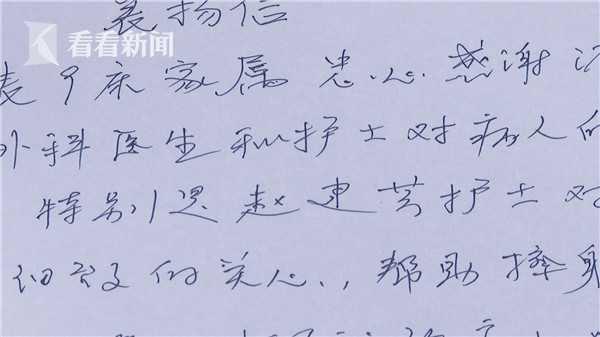 表扬信
看看新闻
9床家属忠心感谢
外科医生和护士对病人的
特别是赵建芳护士对
细致的关心,,帮助擦身